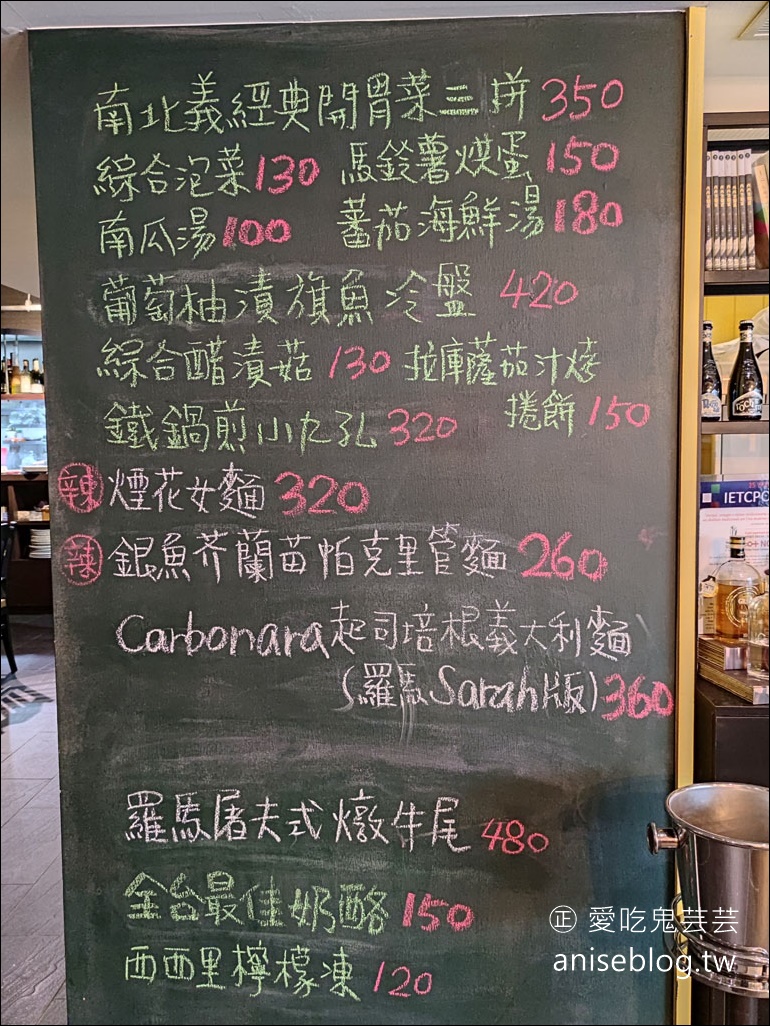 南北義經典開胃菜三拼 350
綜合泡菜 130 馬鈴薯烘蛋 150
南瓜湯 100 蕃茄海鮮湯 180
葡萄柚漬旗魚冷盤 420
綜合醋漬菇 130 拉庫薩茄汁烤
捲餅 150
鐵鍋煎小九孔 320
辣 煙花女麵 320
辣 銀魚芥蘭苗帕克里管麵 260
Carbonara起司培根義大利麵
(羅馬Sarah版) 360
羅馬屠夫式燉牛尾 480
全台最佳奶酪 150
西西里檸檬凍 120
IETCPC
正 愛吃鬼芸芸
aniseblog.tw